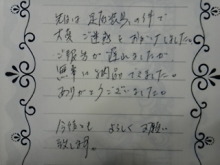 先日は
の件で
大変ご迷惑をおかけしました。
ご報告が遅れましたが
無事に
できました。
ありがとうございました。
今後とも よろしくお願い
致します。